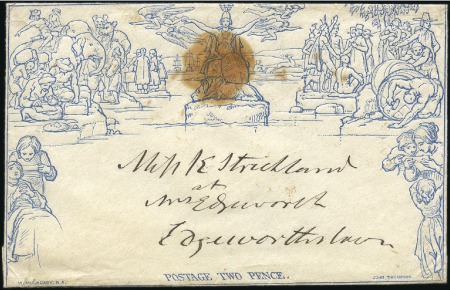 Miss K Strickland
at
Mrs Edgeworth
Edgeworthstown
POSTAGE TWO PENCE.
W. MULREADY, R.A.
JOHN THOMPSON